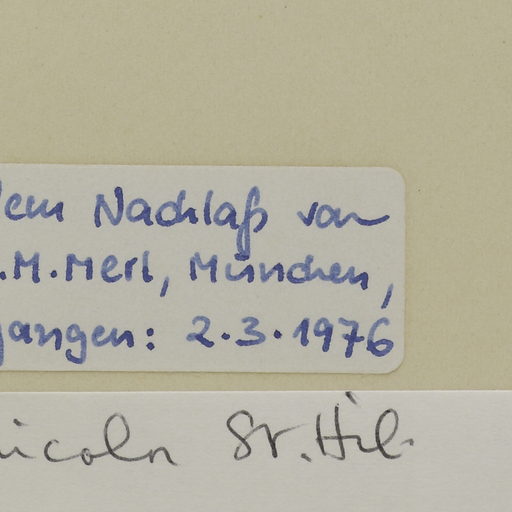 dem Nachlaß von
.M.Merl, München,
gangen: 2.3.1976
nicoln St.Hil.